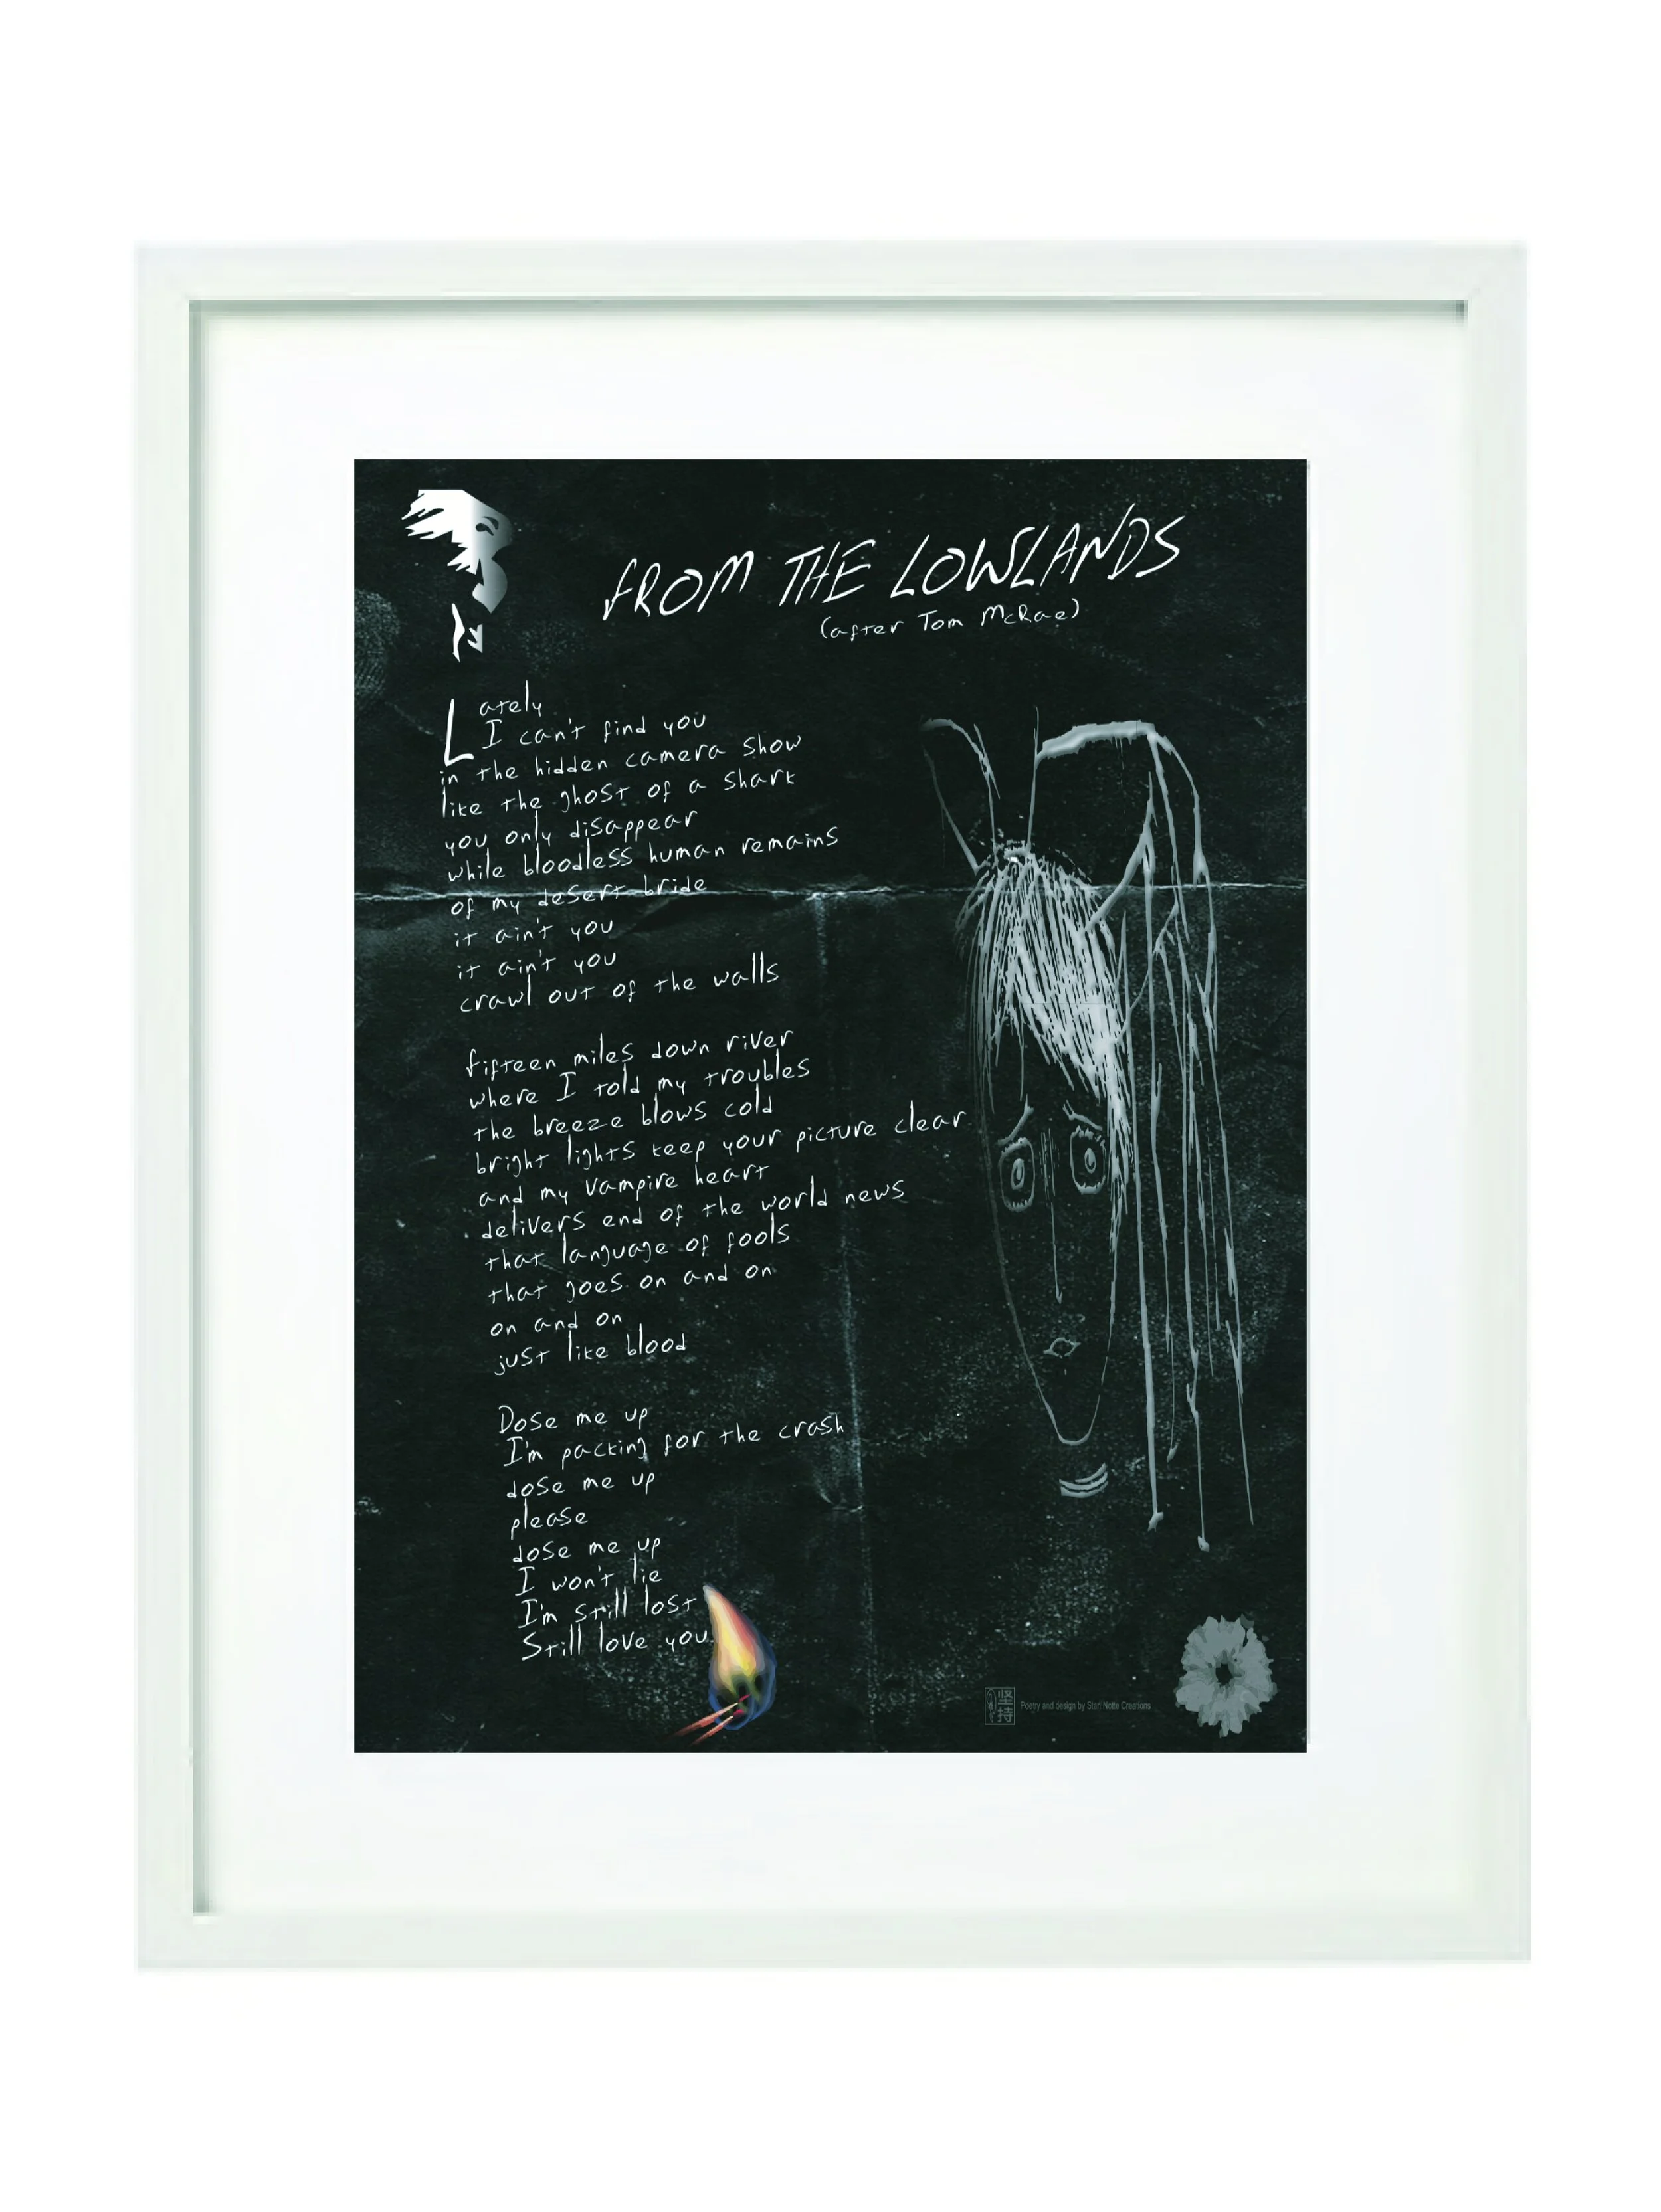 FROM THE LOWSLANDS
(after Tom McRae)
Lately
I can't find you
in the hidden camera show
like the ghost of a shark
you only disappear
while bloodless human remains
of my desert bride
it ain't you
it ain't you
crawl out of the walls
fifteen miles down river
where I told my troubles
the breeze blows cold
bright lights keep your picture clear
and my vampire heart
delivers end of the world news
that language of fools
that goes on and on
on and on
just like blood
Dose me up
I'm packing for the crash
dose me up
please
dose me up
I won't lie
I'm still lost
Still love you
坚持
Poetry and design by Creations